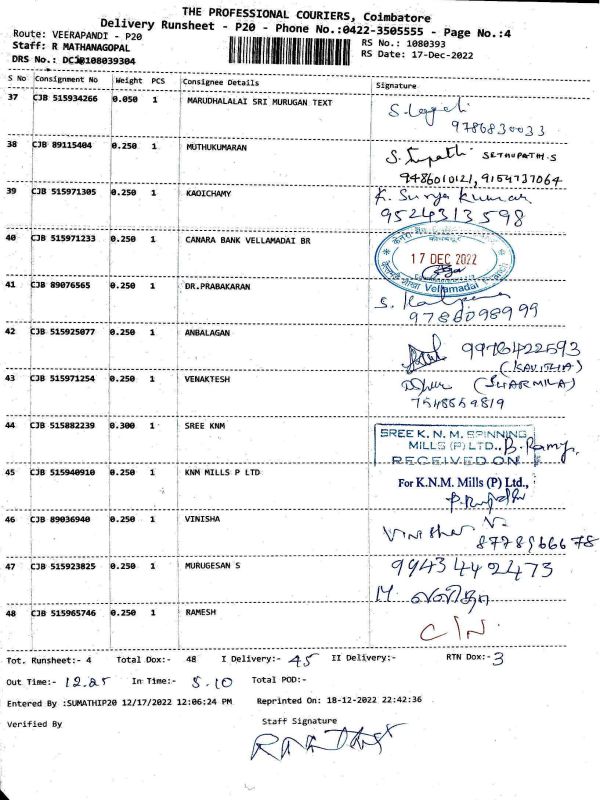 THE PROFESSIONAL COURIERS, Coimbatore
Delivery Runsheet - P20 - Phone No.:0422-3505555 - Page No.:4
Route: VEERAPANDI - P20
RS No.: 1080393
Staff: R MATHANAGOPAL
RS Date: 17-Dec-2022
DRS No.: DCJ0108039304
S No Consignment No Weight PCS Consignee Details Signature
37 CJB 515934266 0.050 1 MARUDHALALAI SRI MURUGAN TEXT
9786830033
38 CJB 89115404 0.250 1 MUTHUKUMARAN S. SETHUPATHI.S
9486010121, 9154737064
39 CJB 515971305 0.250 1 KAOICHAMY K. Surya Kumar
9524313598
40 CJB 515971233 0.250 1 CANARA BANK VELLAMADAI BR
17 DEC 2022
Vellamadai
41 CJB 89076565 0.250 1 DR.PRABAKARAN S.
9786098999
42 CJB 515925077 0.250 1 ANBALAGAN 9976422593
(KAVITHA)
43 CJB 515971254 0.250 1 VENAKTESH (SHARMILA)
7548859819
44 CJB 515882239 0.300 1 SREE KNM
SREE K. N. M. SPINNING
MILLS (P) LTD., B. Ramy
RECEIVED ON
45 CJB 515940910 0.250 1 KNM MILLS P LTD For K.N.M. Mills (P) Ltd.,
46 CJB 89036940 0.250 1 VINISHA Vinisha V.
8778966678
47 CJB 515923825 0.250 1 MURUGESAN S 99434 42473
M.
48 CJB 515965746 0.250 1 RAMESH C/N.
Tot. Runsheet:- 4 Total Dox:- 48 I Delivery:- 45 II Delivery:- RTN Dox:- 3
Out Time:- 12.25 In Time:- 5.10 Total POD:-
Entered By :SUMATHIP20 12/17/2022 12:06:24 PM Reprinted On: 18-12-2022 22:42:36
Verified By Staff Signature